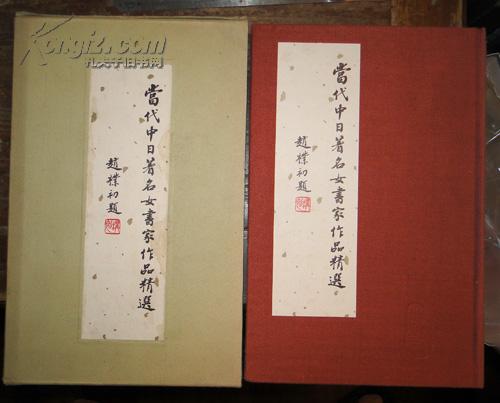 Kongfz.com
孔夫子旧书网
當代中日著名女書家作品精選
趙樸初題
當代中日著名女書家作品精選
趙樸初題